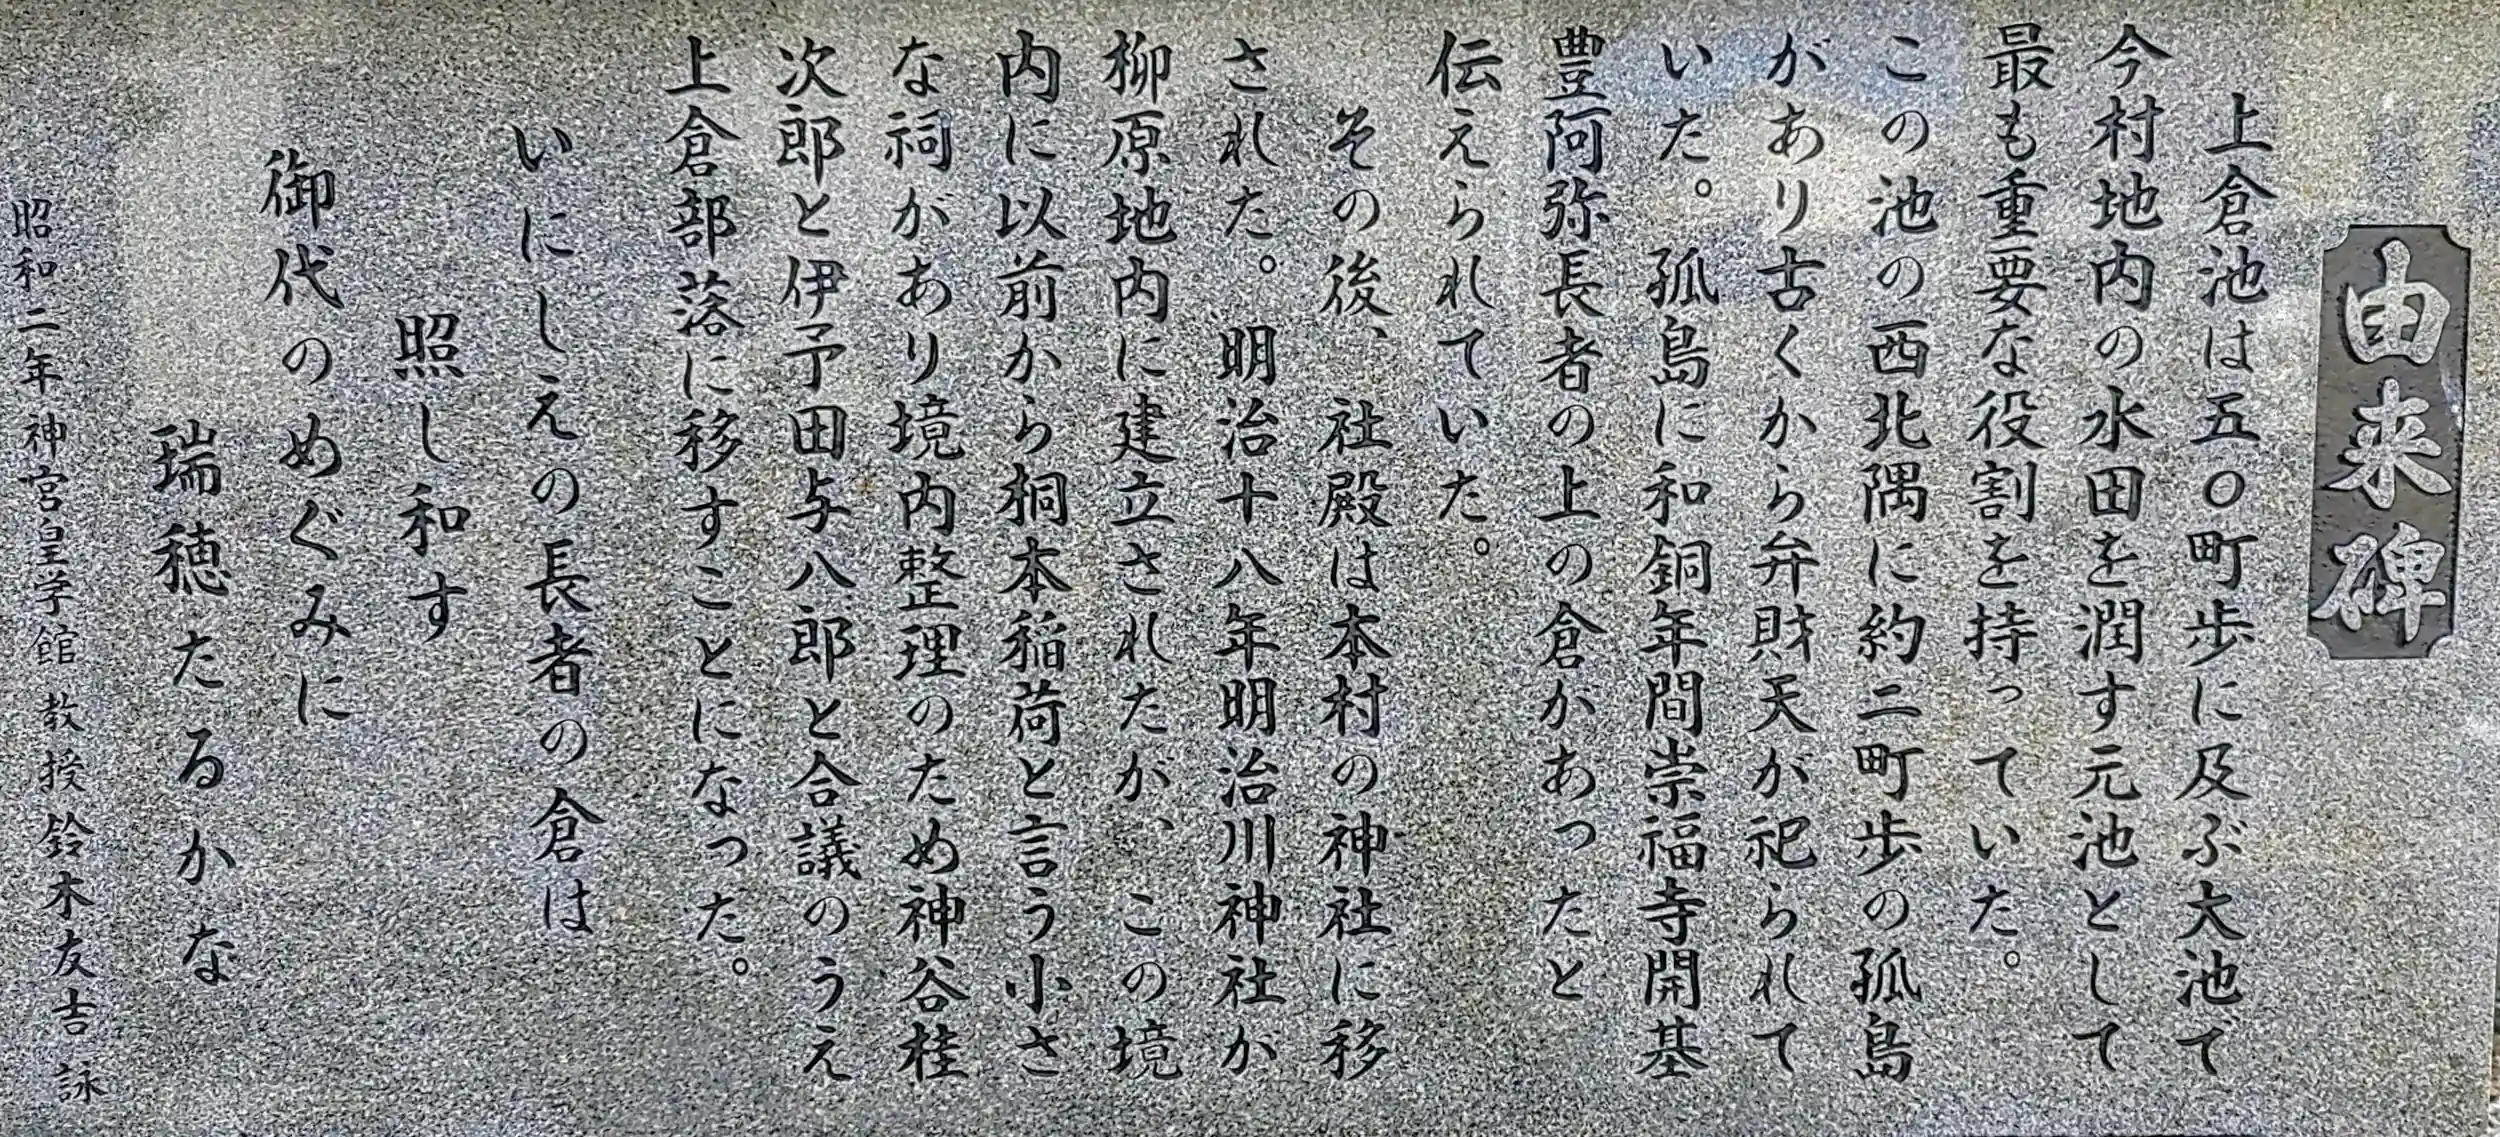 由来碑
上倉池は五〇町歩に及ぶ大池で
今村地内の水田を潤す元池として
最も重要な役割を持っていた。
この池の西北隅に約二町歩の孤島
があり古くから弁財天が祀られて
いた。孤島に和銅年間崇福寺開基
豊阿弥長者の上の倉があったと
伝えられていた。
その後、社殿は本村の神社に移
された。明治十八年明治川神社が
柳原地内に建立されたが、この境
内に以前から桐本稲荷と言う小さ
な祠があり境内整理のため神谷桂
次郎と伊予田与八郎と合議のうえ
上倉部落に移すことになった。
いにしえの長者の倉は
照し和す
御代のめぐみに
瑞穂たるかな
昭和二年神宮皇学館 教授鈴木友吉 詠